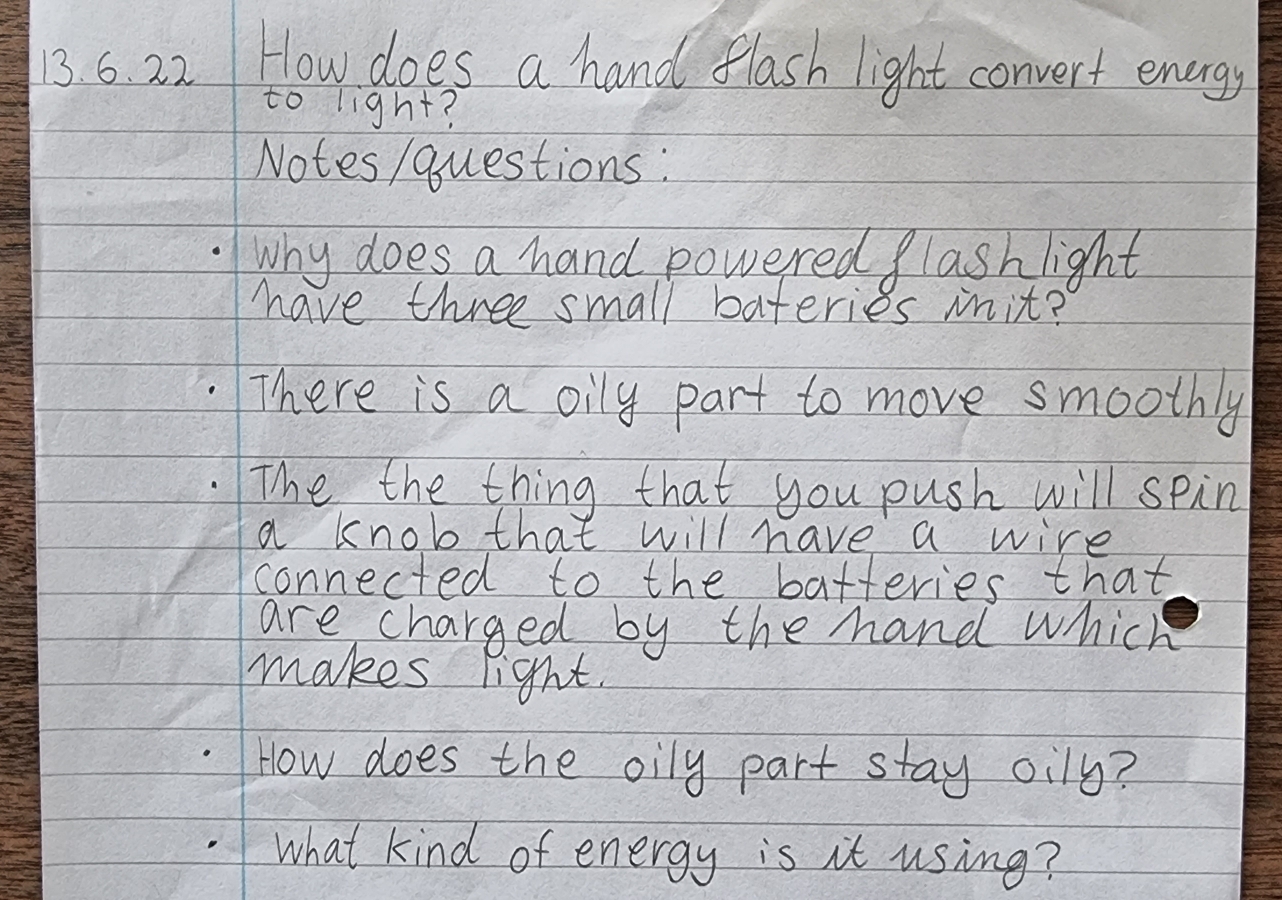 13.6.22 How does a hand flash light convert energy
to light?
Notes/questions:
• Why does a hand powered flashlight
have three small bateries in it?
• There is a oily part to move smoothly
• The the thing that you push will spin
a knob that will have a wire
connected to the batteries that
are charged by the hand which
makes light.
• How does the oily part stay oily?
• What kind of energy is it using?